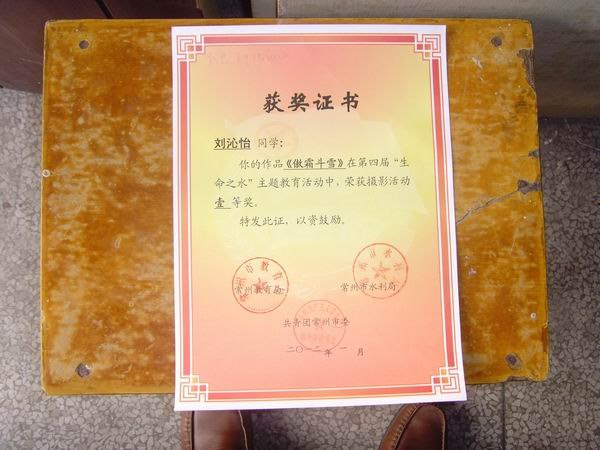 获奖证书
刘沁怡 同学：
你的作品《傲霜斗雪》在第四届“生
命之水”主题教育活动中，荣获摄影活动
壹 等奖。
特发此证，以资鼓励。
常州教育局 常州市水利局
共青团常州市委
二〇一二年 一 月